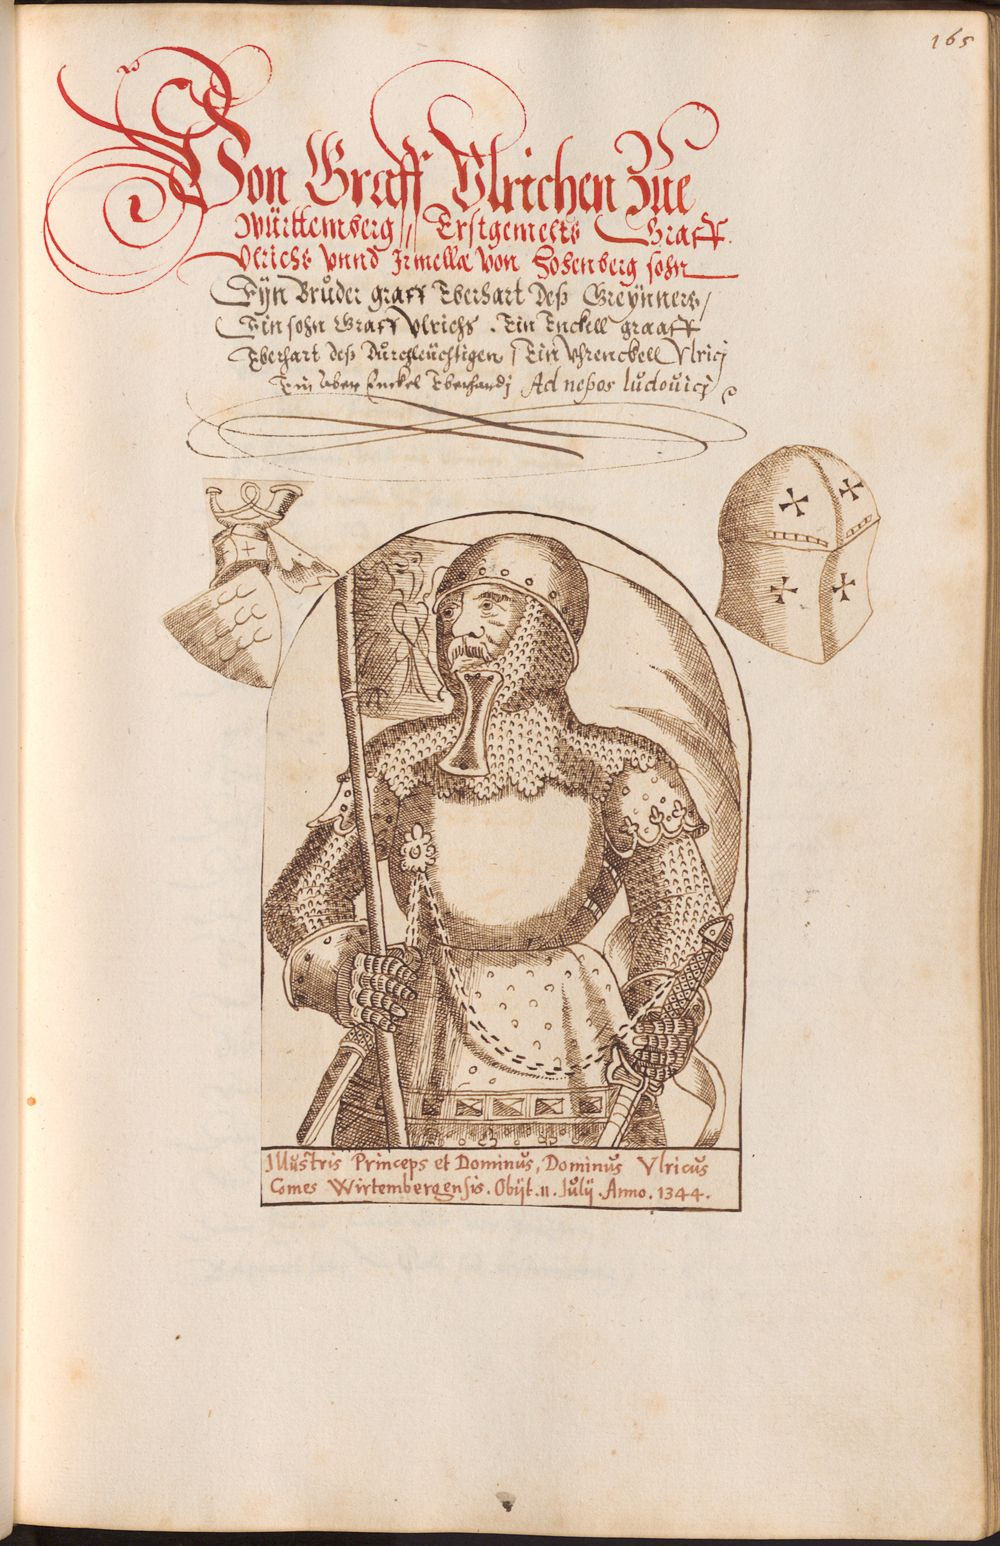 165
Von Graff Ulrichen Zue
Württemberg // Erstgemelts Graff
Ulrichs vnnd Irmella von Hohenberg sohn
Eÿn Brůder graff Eberhart deß Greÿnners /
Ein sohn Graff Vlrichs . Ein Enckell graaff
Eberhart deß Durchleüchtigen / Ein Vhrenckell Vlricj
Ein Enckel Eberhardj Ad neßos ludouicj
Illustris Princeps et Dominus, Dominus Vlricus
Comes Wirtembergensis . Obÿt . 11 . Julÿ . Anno . 1344 .